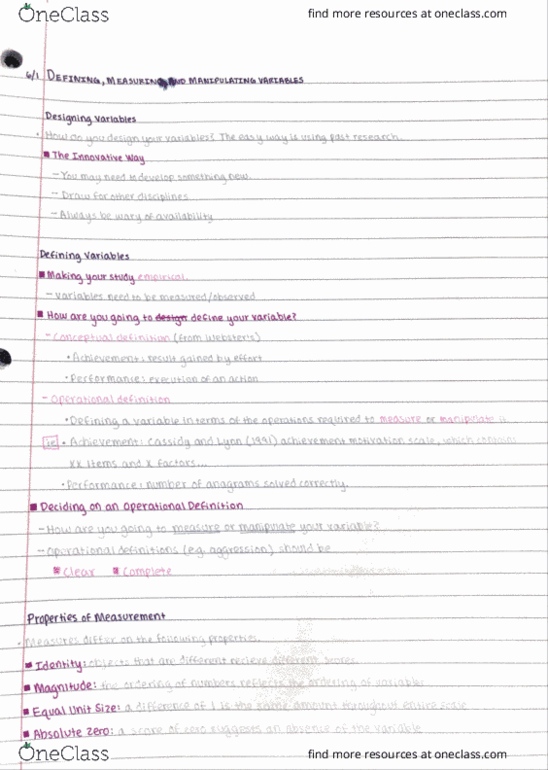 OneClass find more resources at oneclass.com
6/1 DEFINING, MEASURING AND MANIPULATING VARIABLES
Designing Variables
• How do you design your variables? The easy way is using past research.
■ The Innovative Way
- You may need to develop something new.
- Draw for other disciplines
- Always be wary of availability
Defining Variables
■ Making your study empirical.
- Variables need to be measured/observed
■ How are you going to design define your variable?
- Conceptual definition (from Webster's)
• Achievement: result gained by effort
• Performance: execution of an action
- Operational definition
• Defining a variable in terms of the operations required to measure or manipulate it
ie • Achievement: Cassidy and Lynn (1991) achievement motivation scale, which contains
XX items and X factors...
• Performance: number of anagrams solved correctly.
■ Deciding on an Operational Definition
- How are you going to measure or manipulate your variable?
- Operational definitions (e.g. aggression) should be
■ Clear ■ Complete
Properties of Measurement
• Measures differ on the following properties.
■ Identity: objects that are different recieve different scores
■ Magnitude: the ordering of numbers reflects the ordering of variables
■ Equal Unit Size: a difference of 1 is the same amount throughout entire scale
■ Absolute Zero: a score of zero suggests an absence of the variable
OneClass find more resources at oneclass.com